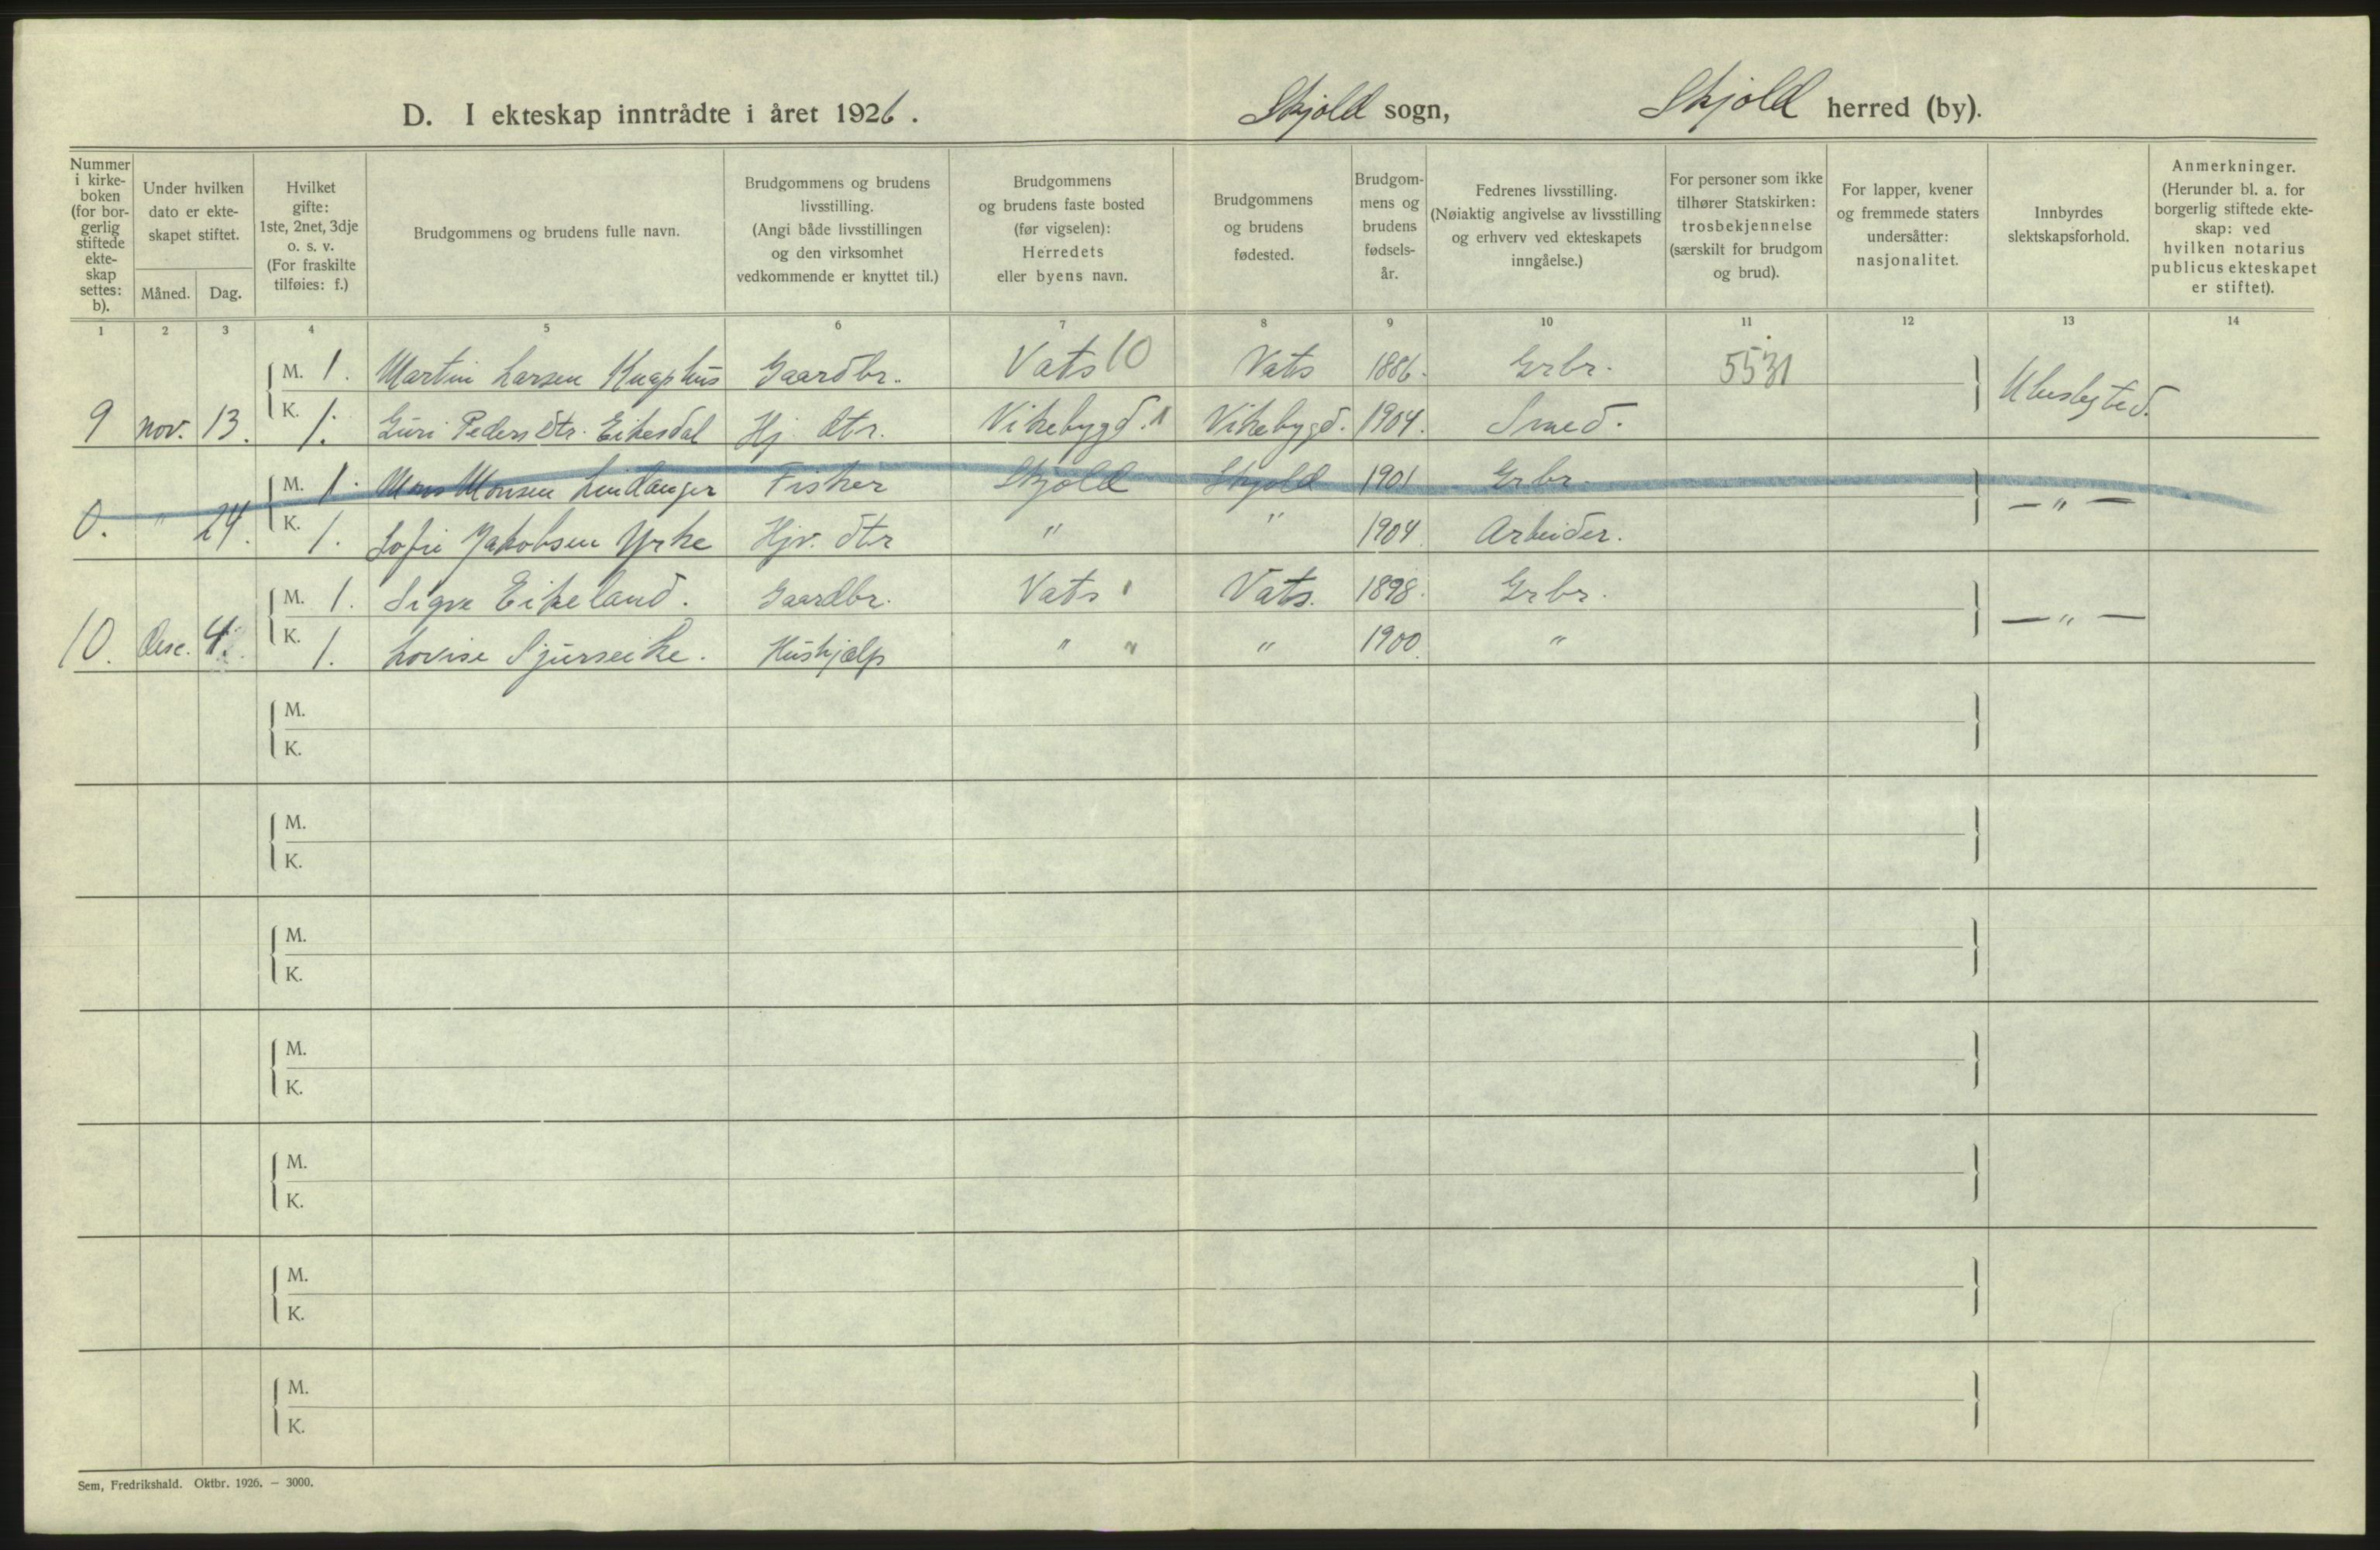 D. I ekteskap inntrådte i året 1926. Skjold sogn, Skjold herred (by).
Nummer i kirkeboken (for borgerlig stiftede ekteskap settes: b).
Under hvilken dato er ekteskapet stiftet.
Måned. Dag.
Hvilket gifte: 1ste, 2net, 3dje o. s. v. (For fraskilte tilføies: f.)
Brudgommens og brudens fulle navn.
Brudgommens og brudens livsstilling. (Angi både livsstillingen og den virksomhet vedkommende er knyttet til.)
Brudgommens og brudens faste bosted (før vigselen): Herredets eller byens navn.
Brudgommens og brudens fødested.
Brudgommens og brudens fødselsår.
Fedrenes livsstilling. (Nøiaktig angivelse av livsstilling og erhverv ved ekteskapets inngåelse.)
For personer som ikke tilhører Statskirken: trosbekjennelse (særskilt for brudgom og brud).
For lapper, kvener og fremmede staters undersåtter: nasjonalitet.
Innbyrdes slektskapsforhold.
Anmerkninger. (Herunder bl. a. for borgerlig stiftede ekteskap: ved hvilken notarius publicus ekteskapet er stiftet).
1 2 3 4 5 6 7 8 9 10 11 12 13 14
M. 1. Martin Larsen Knaphus Gaardbr. Vats 10 Vats 1886. Grbr. 5531
9 nov. 13. K. 1. Guri Pedersdtr. Eikesdal Hj. dtr. Vikebygd. 1 Vikebygd. 1904. Smed. Ubeslegted.
M. 1. Mons Monsen Lindanger Fisker Skjold Skjold 1901 Grbr.
0. " 24. K. 1. Sofie Jakobsen Yrke Hjv. dtr " " 1904 Arbeider. — " —
M. 1. Sigve Eikeland. Gaardbr. Vats 1 Vats. 1898. Grbr.
10. Dese. 4. K. 1. Lovise Sjurseike. Hushjælp " " " 1900. " — " —
M.
K.
M.
K.
M.
K.
M.
K.
M.
K.
M.
K.
M.
K.
Sem, Fredrikshald. Oktbr. 1926. — 3000.